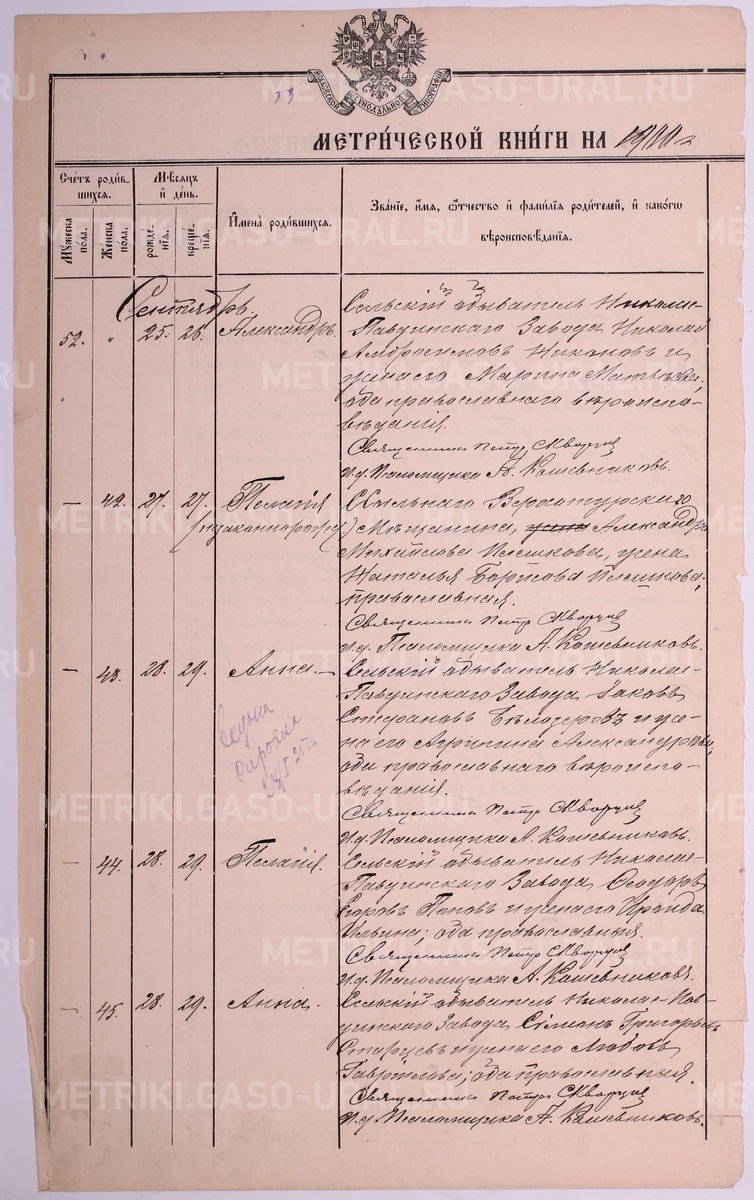 МОСКОВСКОЙ СѴНОДАЛЬНОЙ ТИПОГРАФІИ
МЕТРИ́ЧЕСКОЙ КНИ́ГИ НА
Сче́тъ роди́вшихся.
Мѣ́сяцъ и҆ де́нь.
И҆мена̀ роди́вшихся.
Зва́ніе, и҆́мя, ѻ҆́тчество и҆ фами́лія роди́телей, и҆ како́гѡ вѣроисповѣ́данія.
Мꙋ́жеска по́ла.
Же́нска по́ла.
рожде́нія.
креще́нія.
Сентябрь.
52. " 25. 26. Александръ. Сельскій обыватель Николае-
Павдинскаго Завода Николай
Амвросимовъ Никоновъ и
жена его Марина Матвѣева,
оба православнаго вѣроиспо-
вѣданія.
Священникъ Петръ Скворцов
И. д. Псаломщика А. Кашевниковъ.
— 42. 27. 27. Пелагія (незаконнорожд.)
Верхотурскаго
Мѣщанина, жена Александра
Михайлова Пѣшкова, жена
Наталья Борисова Пѣшкова,
православная.
Священникъ Петръ Скворцов
И. д. Псаломщика А. Кашевниковъ.
— 43. 28. 29. Анна. Сельскій обыватель Николае-
Павдинскаго Завода Іаковъ
Стефановъ Бѣлозеровъ и же-
на его Агрипина Александрова,
оба православнаго вѣроиспо-
вѣданія.
Священникъ Петръ Скворцов
И. д. Псаломщика А. Кашевниковъ.
— 44. 28. 29. Пелагія. Сельскій обыватель Николае-
Павдинскаго Завода Ѳеодоръ
Егоровъ Поповъ и жена его Ираида
Ильина, оба православныя.
Священникъ Петръ Скворцов
И. д. Псаломщика А. Кашевниковъ.
— 45. 28. 29. Анна. Сельскій обыватель Николае-Пав-
динскаго Завода Сімеонъ Григорьевъ
Старцевъ и жена его Любовь
Гаврійлова, оба православныя.
Священникъ Петръ Скворцов
И. д. Псаломщика А. Кашевниковъ.
METRIKI.GASO-URAL.RU